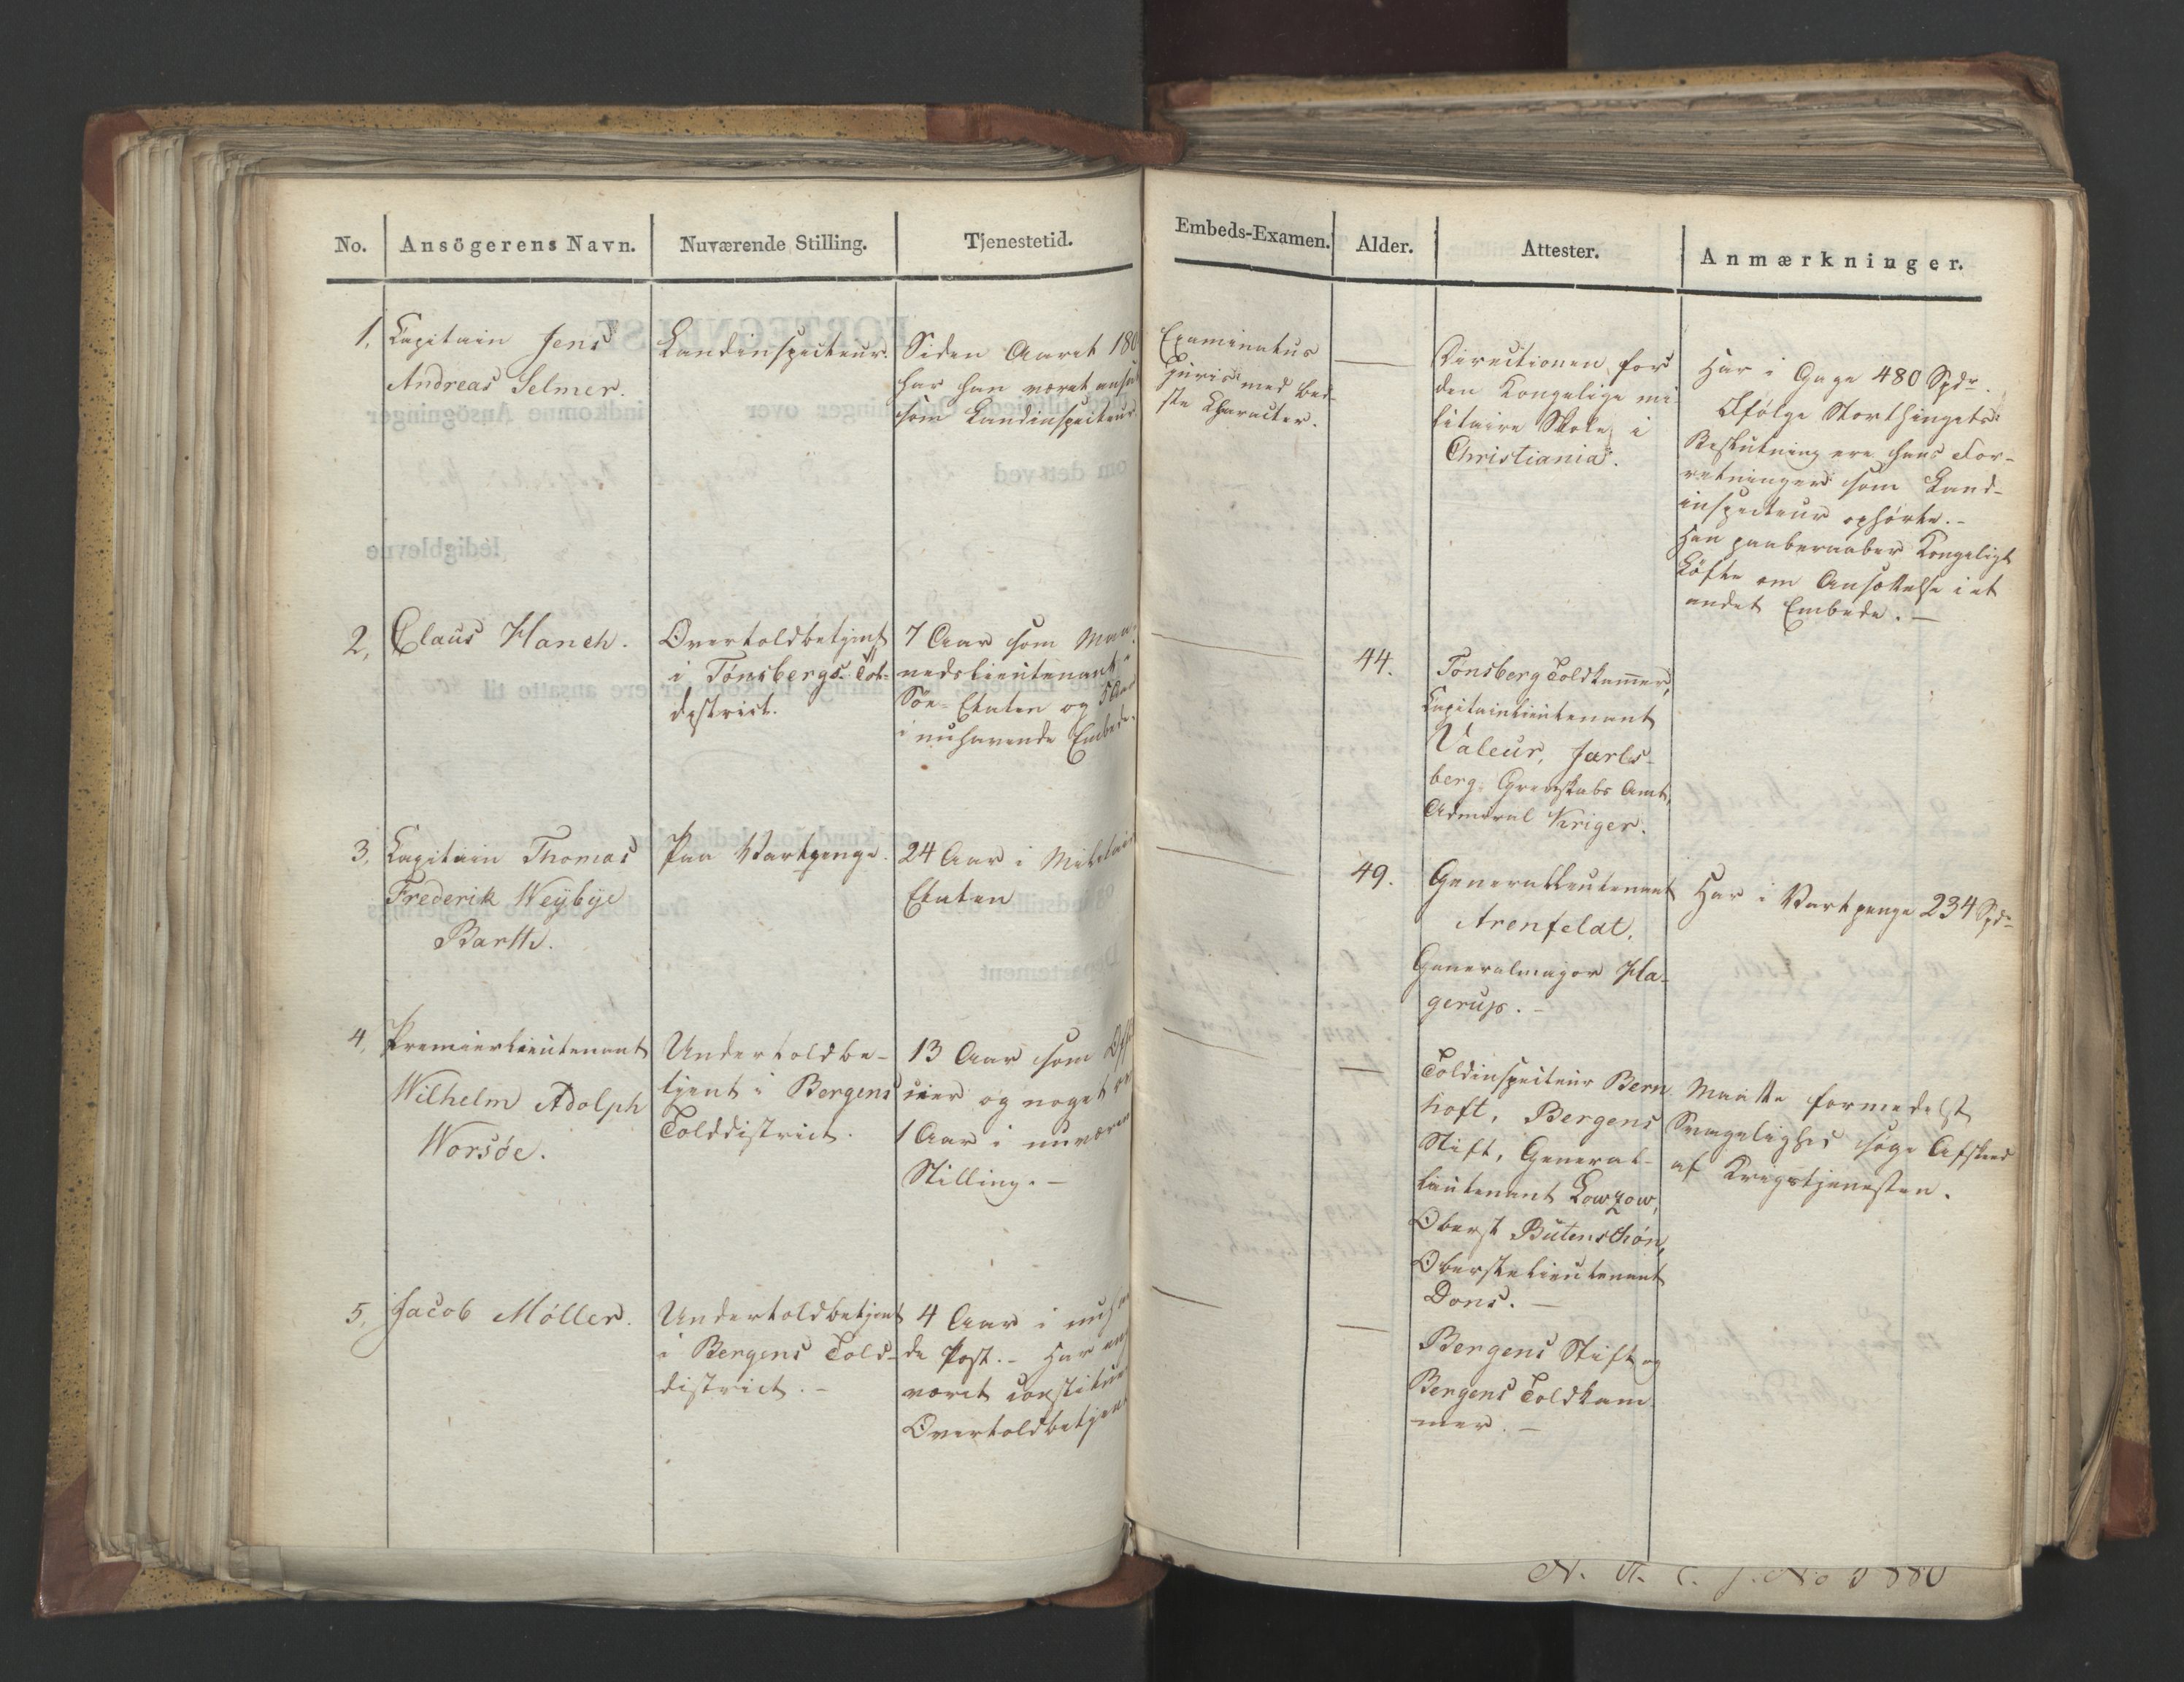 No. Ansögerens Navn. Nuværende Stilling. Tjenestetid. Embeds-Examen. Alder. Attester. Anmærkninger.
1, Capitain Jens
Andreas Selmer.
Landinspecteur.
Siden Aaret 180
har han været ansat
som Landinspecteur
Examinatus
juris med bed-
ste Character.
Directionen for
den Kongelige mi
litaire Skole i
Christiania.
Har i Gage 480 Spdr.
Ifølge Storthingets
Beslutning ere hans For-
retninger som Land-
inspecteur ophørte.-
Han paaberaaber Kongeligt
Løfte om Ansættelse i et
andet Embede. —
2, Claus Hanch.
Overtoldbetjent
i Tönsbergs Told-
district.
7 Aar som Maa-
nedslieutenant i
Söe-Etaten og 5 Aar
i nuhavende Embede.
44.
Tonsberg Toldkammer,
Capitainlieutenant
Valeur, Jarls-
berg Grevskabs Amt,
Admiral Kriger.
3, Capitain Thomas
Frederik Weybye
Barth.
Paa Vartpenge.
24 Aar i Militair
Etaten
49.
Generallieutenant
Arenfeldt,
Generalmajor Ha-
gerup. -
Har i Vartpenge 234 Spdr
4, Premierlieutenant
Wilhelm Adolph
Worsöe.
Undertoldbe-
tjent i Bergens
Tolddistrict.
13 Aar som Offi
cier og noget over
1 Aar i nuværen
Stilling. —
Toldinspecteur Bern
hoft, Bergens
Stift, General-
lieutenant Lowzow,
Oberst Butenschön,
Oberstelieutenant
Dons. —
Maatte formedelst
Svagelighed søge Afsked
af Krigstjenesten.
5, Jacob Möller.
Undertoldbetjent
i Bergens Told-
district. -
4 Aar i nuhaven
de Post. - Har og
været constitueret
Overtoldbetjent
Bergens Stift og
Bergens Toldkam
mer. —